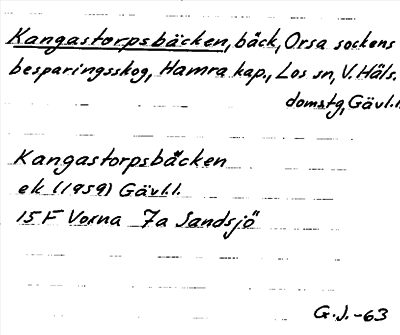 Kangastorpsbäcken, bäck, Orsa sockens
besparingsskog, Hamra kap., Los sn, V. Häls.
domstg, Gävl.l.
Kangastorpsbäcken
ek (1959) Gävl.l.
15 F Voxna 7a Sandsjö
G.J.-63